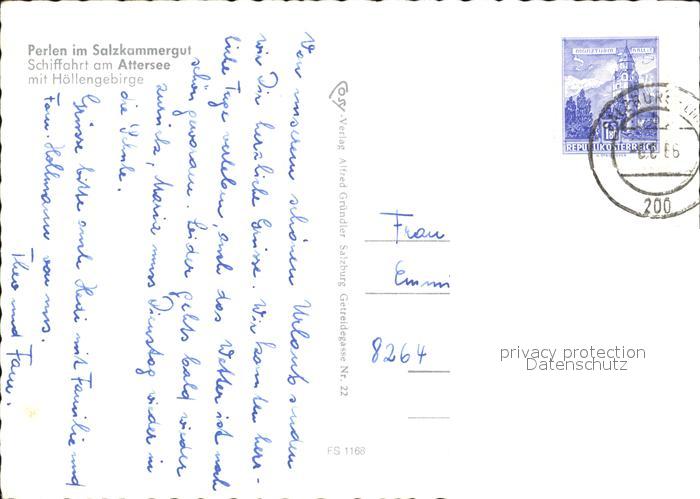 Perlen im Salzkammergut
Schiffahrt am Attersee
mit Höllengebirge
Von unserem schönen Urlaub senden
wir Dir herzliche Grüsse. Wir konnten herr-
liche Tage verleben, auch das Wetter ist noch
schön geworden. Leider gehts bald wieder
zurück, Maria muss Dienstag wieder in
die Schule.
Grüsse bitte auch Hedi mit Familie und
Fam. Hollmann von uns.
Theo und Fam.
Cosy-Verlag Alfred Gründler Salzburg Getreidegasse Nr. 22
FS 1168
MÜNZTURM HALL I. T.
REPUBLIK ÖSTERREICH
200
Frau
Emmi
8264
privacy protection
Datenschutz